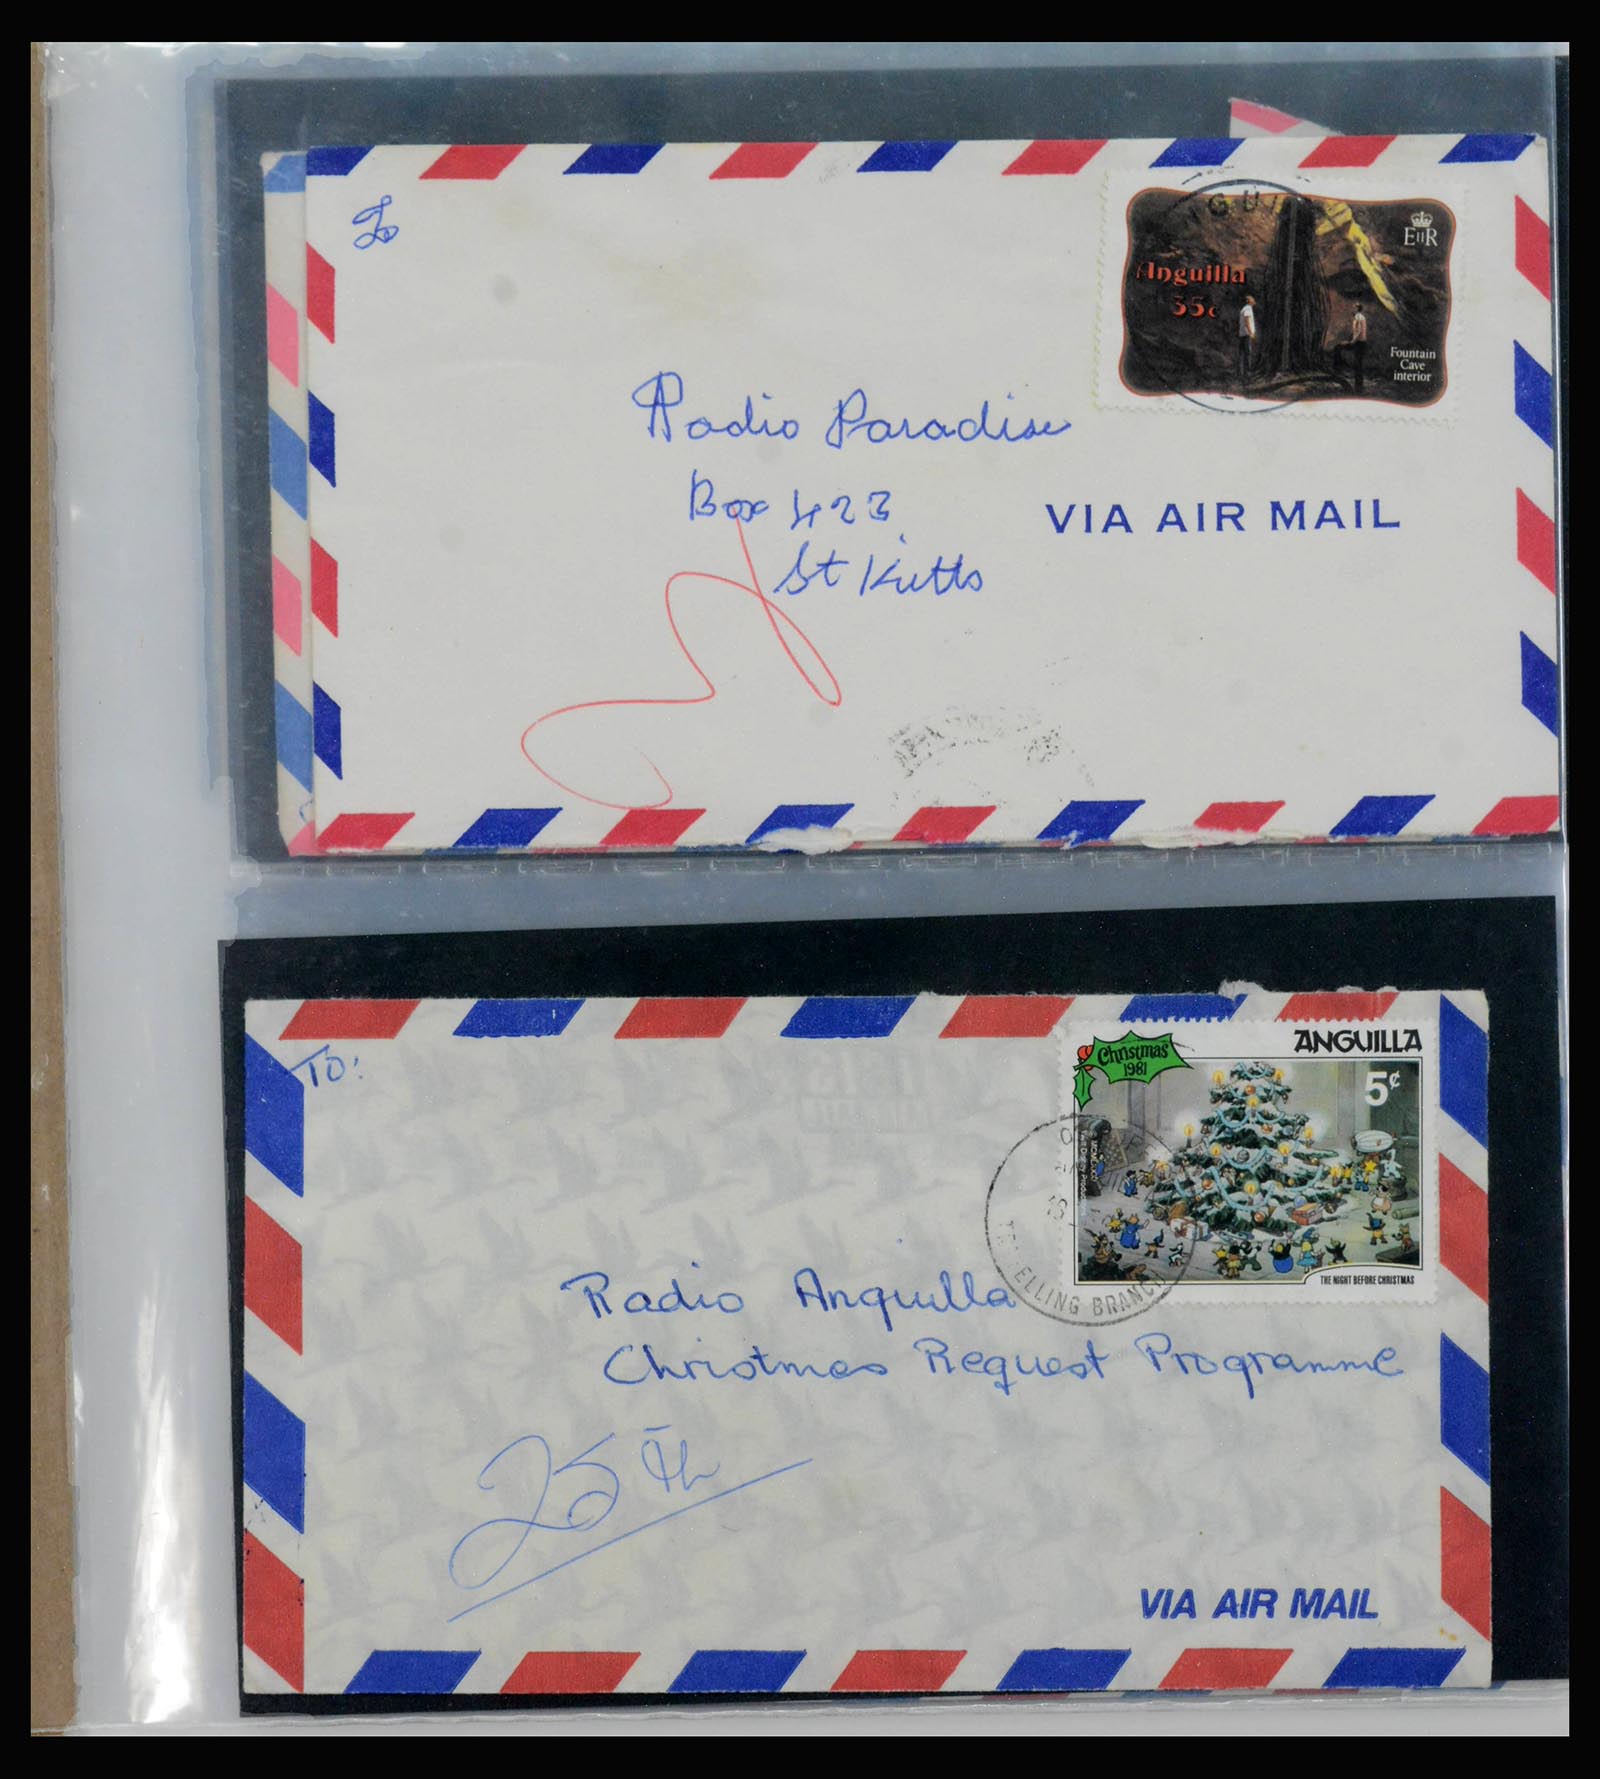 To
ANGUI
EIIR
Anguilla
35c
Fountain
Cave
interior
Radio Paradise
Box 423
St Kitts
VIA AIR MAIL
TO:
Christmas
1981
ANGUILLA
5¢
THE NIGHT BEFORE CHRISTMAS
TRAVELLING BRANCH
Radio Anguilla
Christmas Request Programme
25Th
VIA AIR MAIL